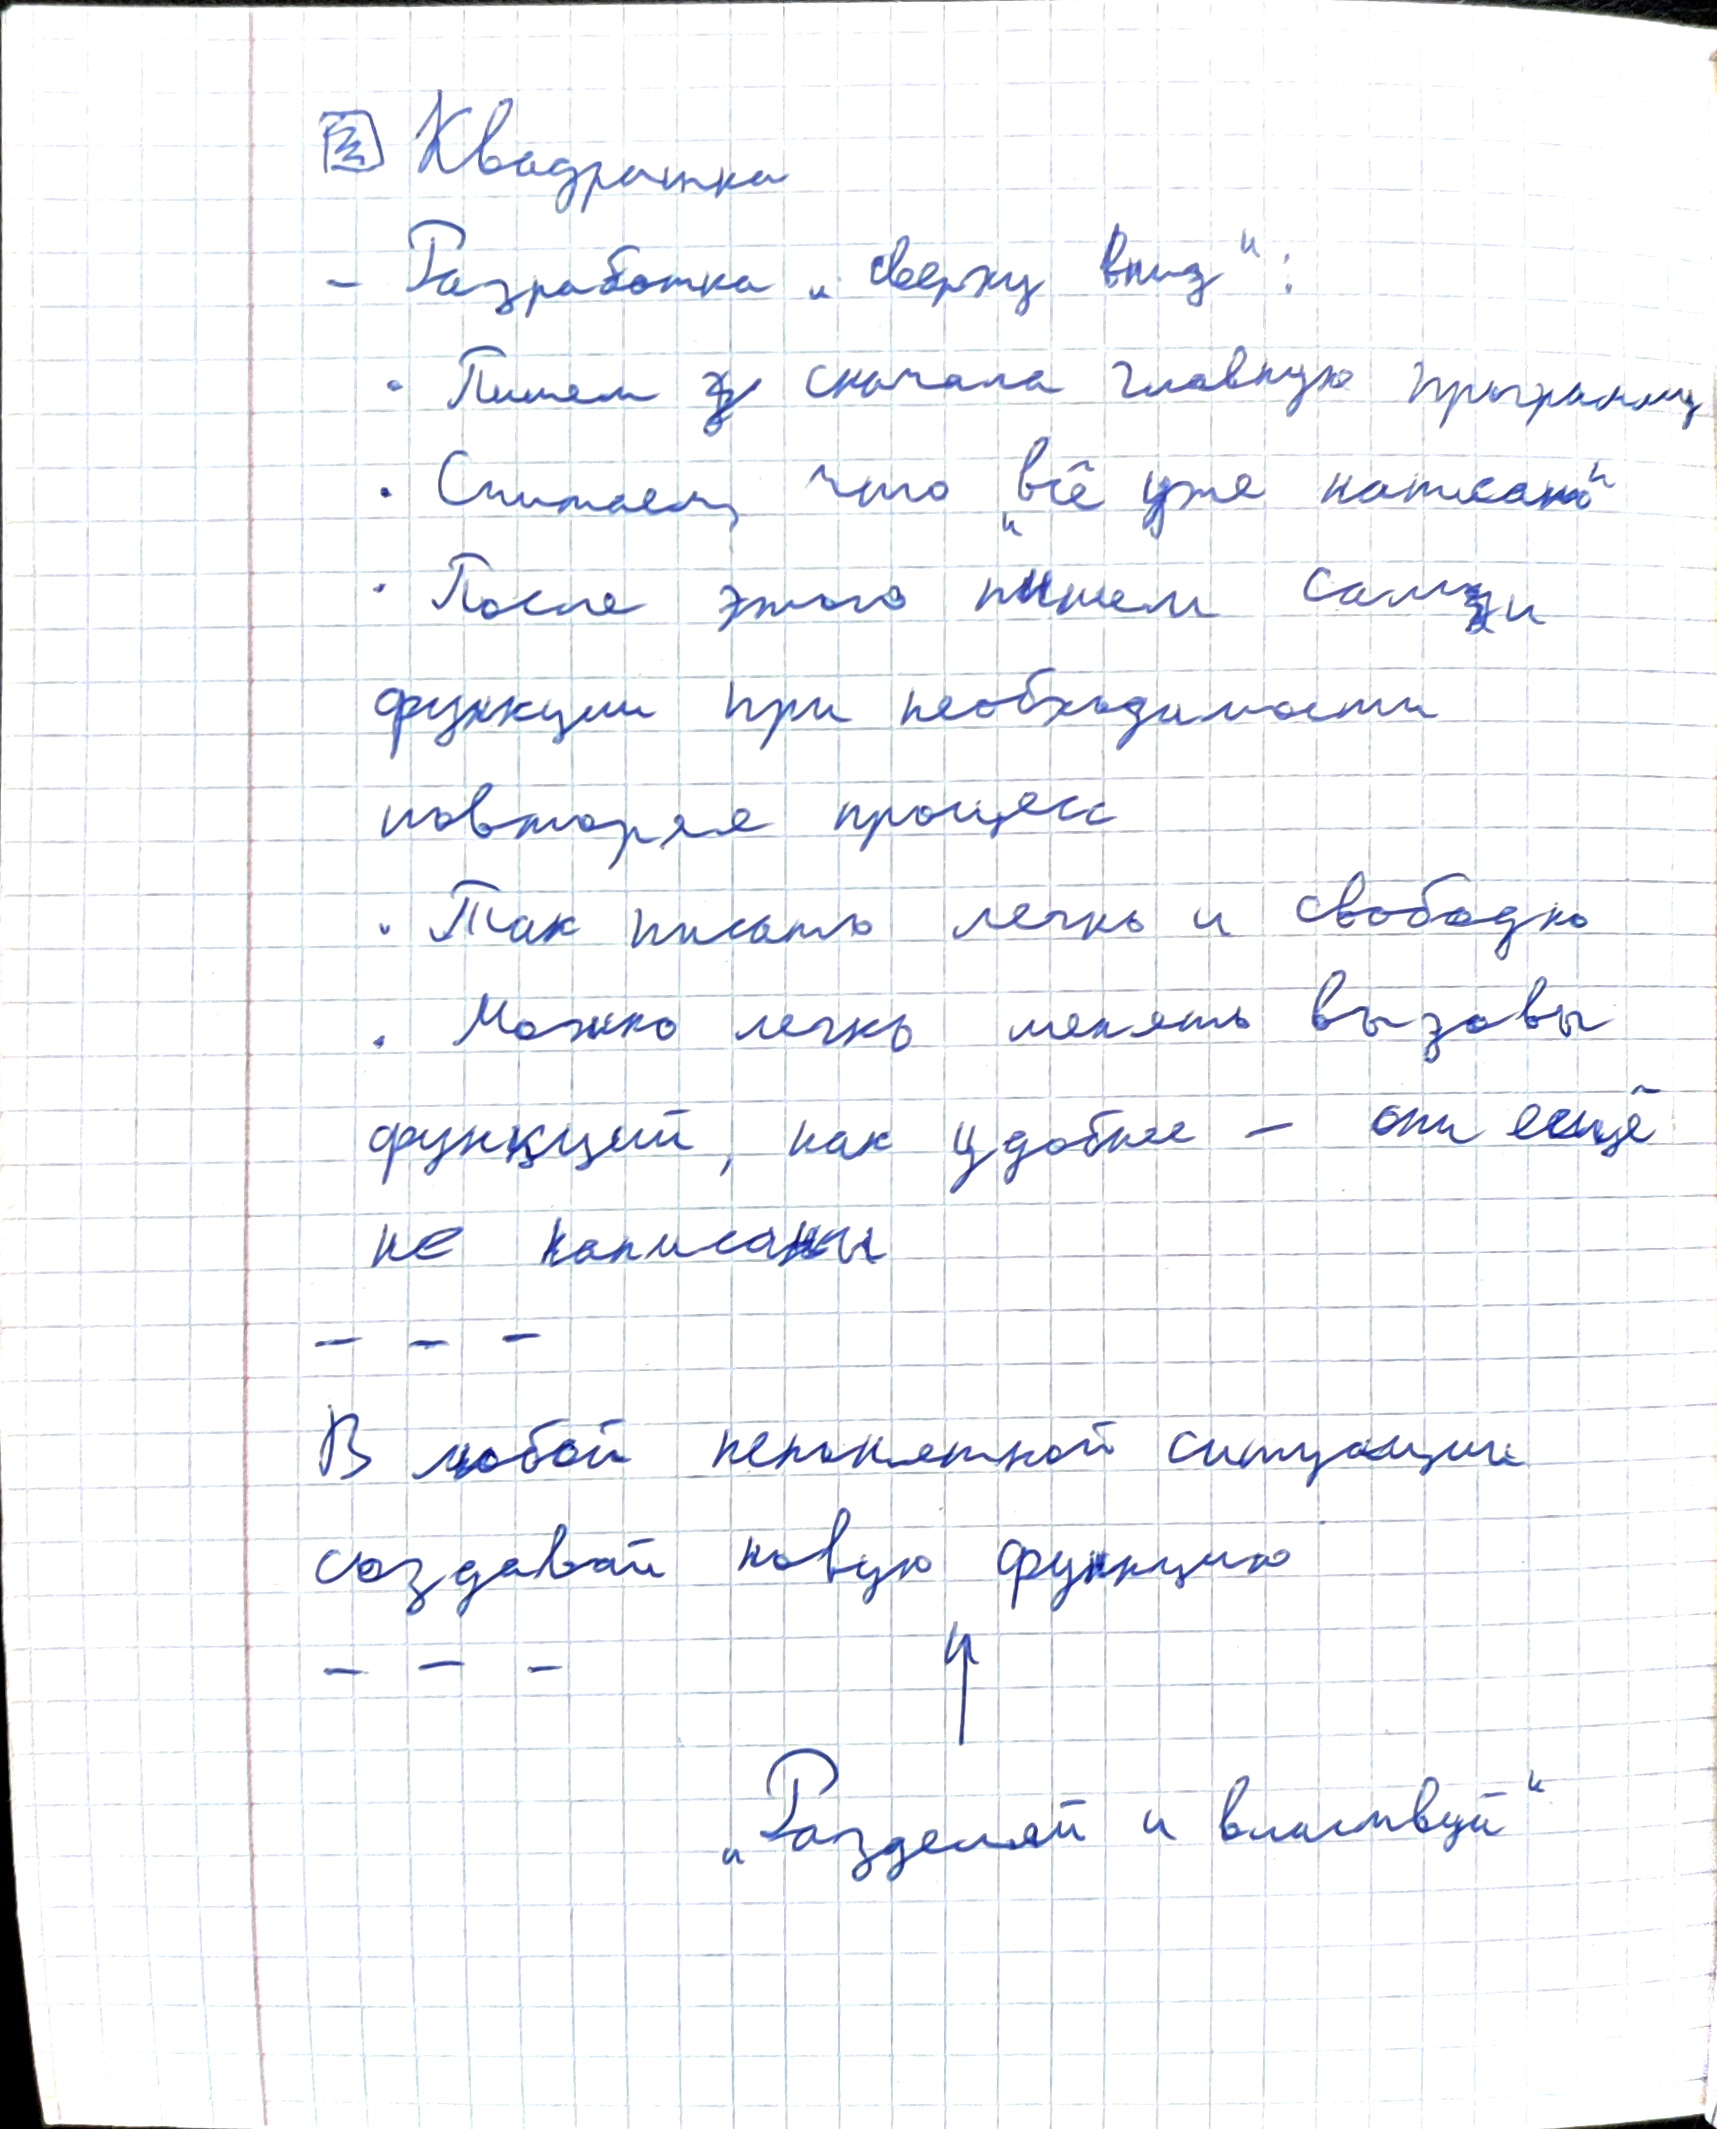 Квадратика
- Разработка „сверху вниз“:
· Пишем сначала главную программу
· Считаем, что „всё уже написано“
· После этого пишем сами
функции при необходимости
повторяя процесс
· Так писать легко и свободно
· Можно легко менять вызовы
функций, как удобнее - они ещё
не написаны
- - -
В любой непонятной ситуации
создавай новую функцию
- - -
„Разделяй и властвуй“